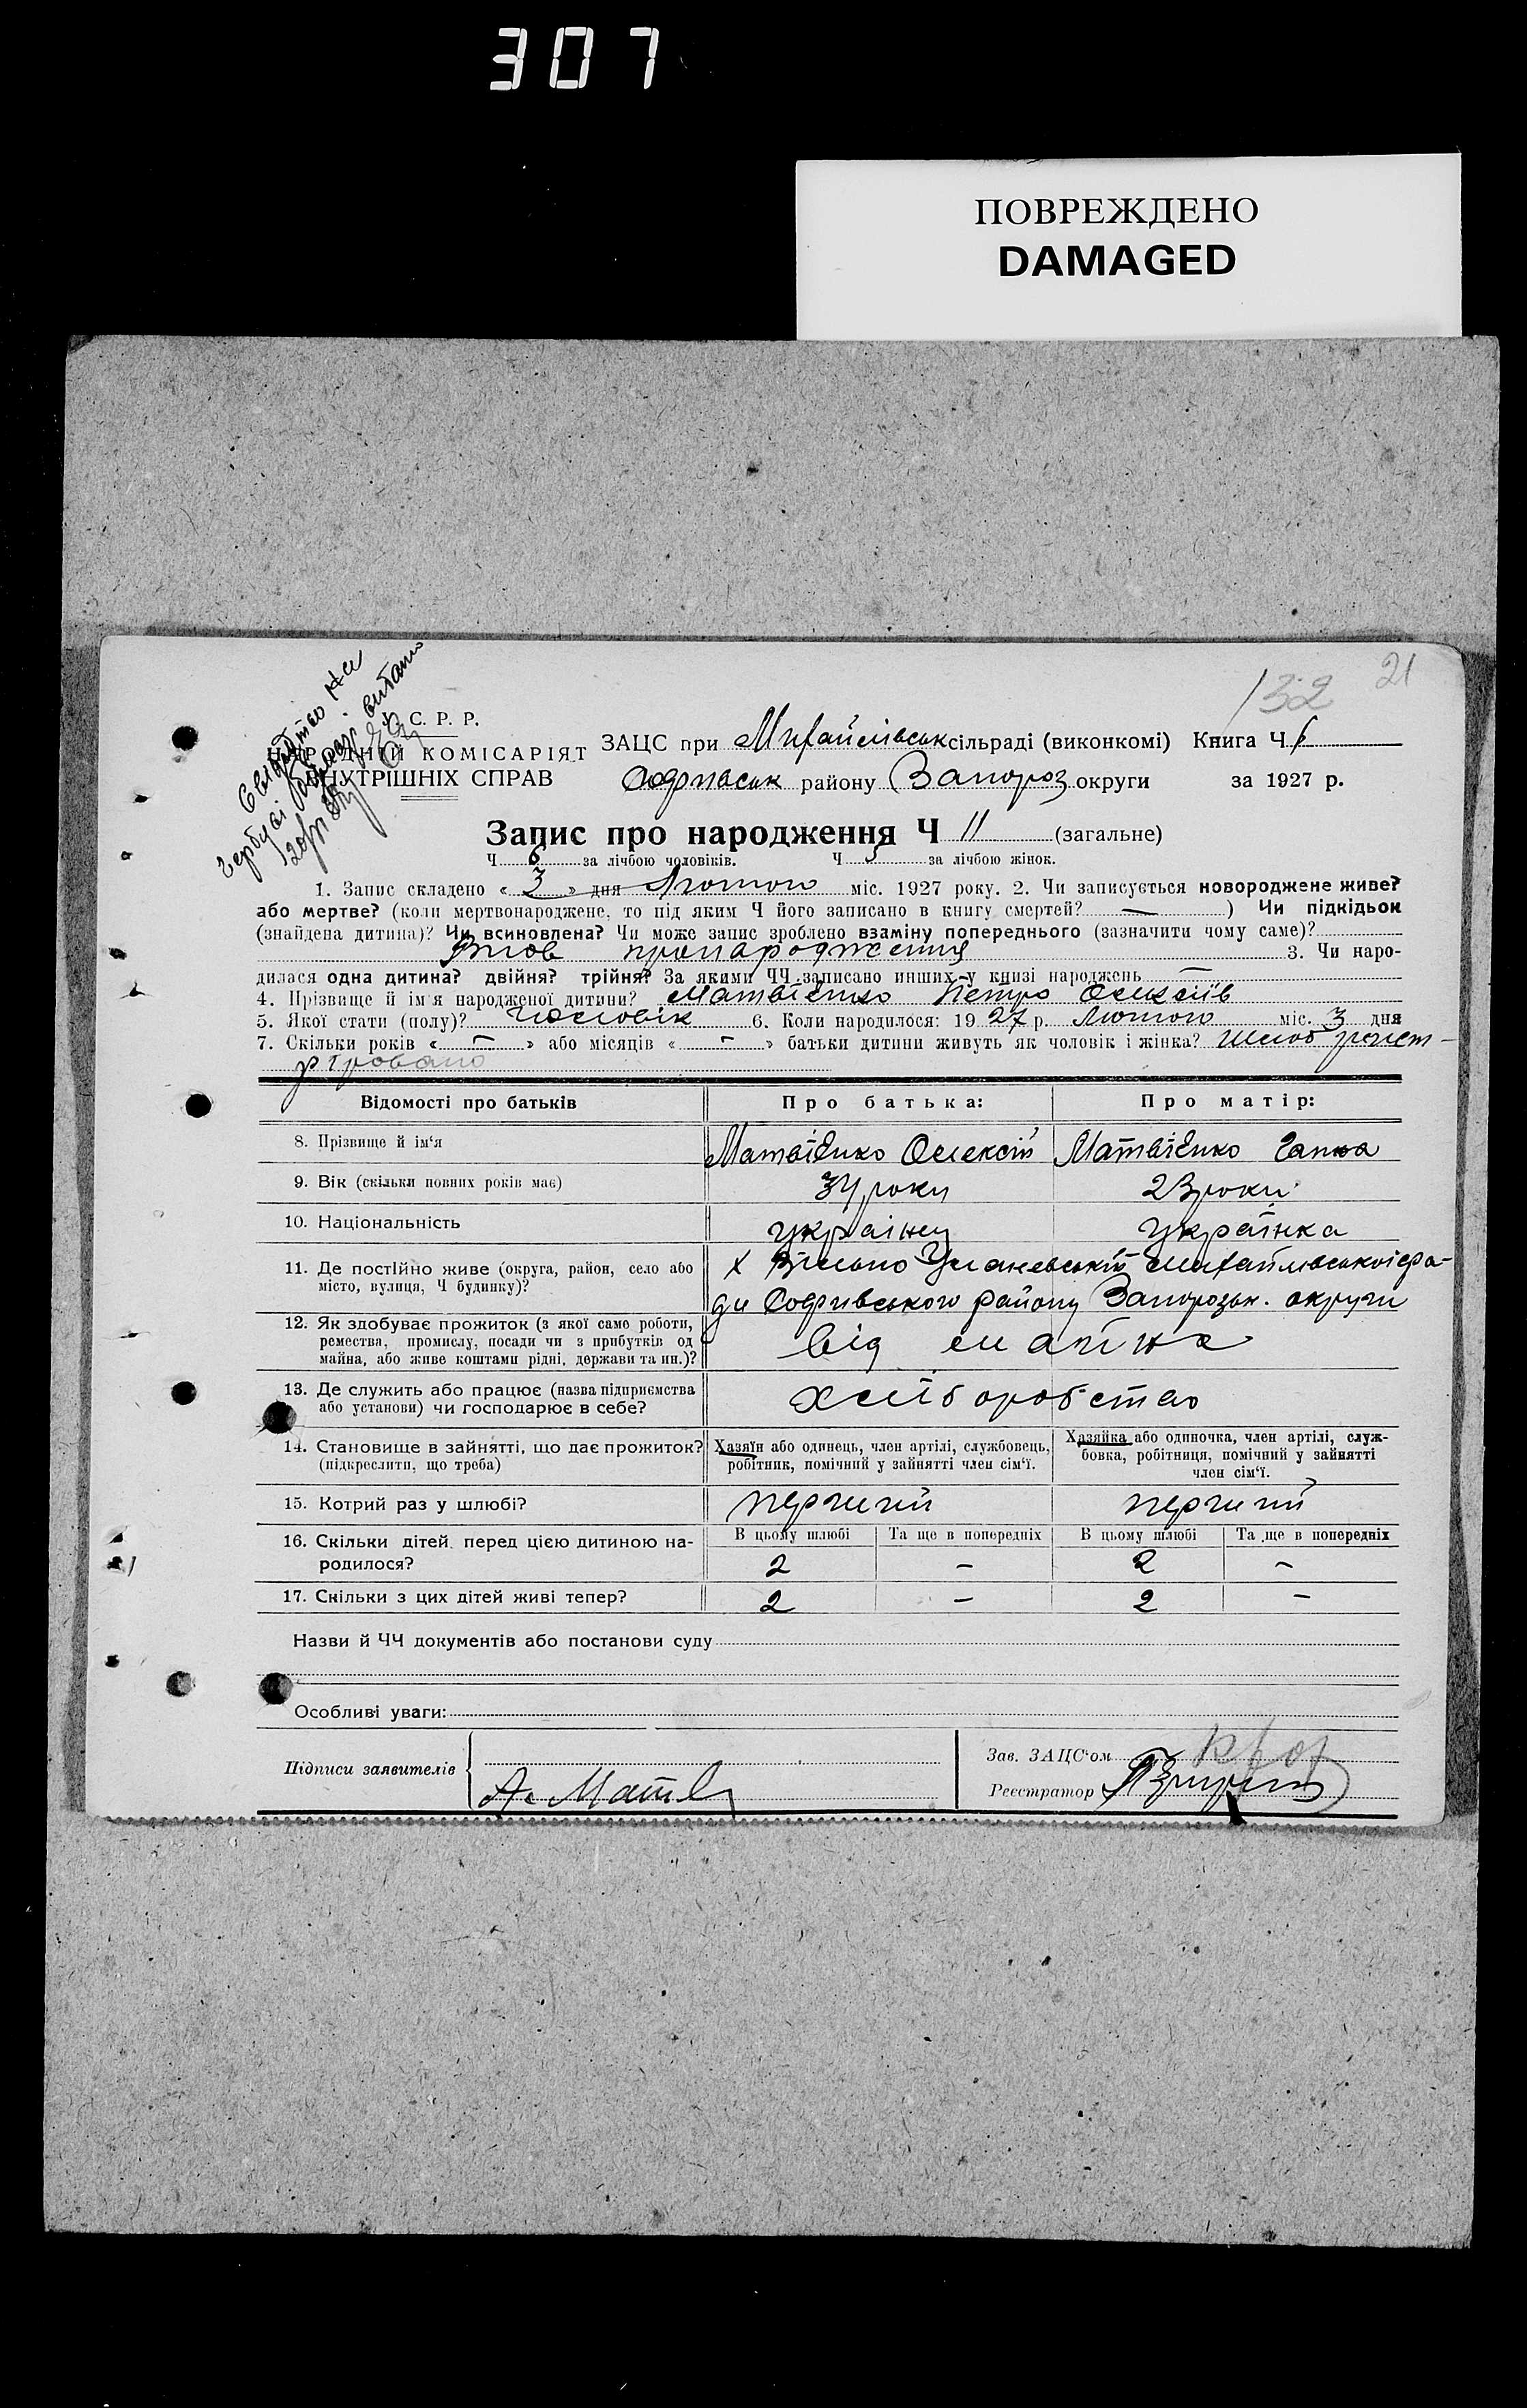 307
ПОВРЕЖДЕНО
DAMAGED
132 21
С. Р. Р.
НАРОДНІЙ КОМІСАРІЯТ
ВНУТРІШНІХ СПРАВ
ЗАЦС при Михайлівськ сільраді (виконкомі) Книга Ч
району Запороз округи за 1927 р.
Запис про народження Ч 11 (загальне)
Ч 6 за лічбою чоловіків. Ч 5 за лічбою жінок.
1. Запис складено « 3 » дня Лютого міс. 1927 року. 2. Чи записується новороджене живе?
або мертве? (коли мертвонароджене, то під яким Ч його записано в книгу смертей? — ) Чи підкідьок
(знайдена дитина)? Чи всиновлена? Чи може запис зроблено взаміну попереднього (зазначити чому саме)?
пронародження 3. Чи наро-
дилася одна дитина? двійня? трійня? За якими ЧЧ записано инших у книзі народжень —
4. Прізвище й ім'я народженої дитини? Матвієнко Петро Олексіїв
5. Якої стати (полу)? Чоловік 6. Коли народилося: 1927 р. Лютого міс. 3 дня
7. Скільки років « — » або місяців « — » батьки дитини живуть як чоловік і жінка? Шлюб регист-
рировано
Відомості про батьків Про батька: Про матір:
8. Прізвище й ім'я Матвієнко Олексій Матвієнко Ганна
9. Вік (скільки повних років має) 34 роки 23 роки
10. Національність українец українка
11. Де постійно живе (округа, район, село або місто, вулиця, Ч будинку)? х Вільно Улановській Михайлівської ра-
ди Софиивського району Запорозьк. округи
12. Як здобуває прожиток (з якої саме роботи,
ремества, промислу, посади чи з прибутків од
майна, або живе коштами рідні, держави та ин.)? від майна
13. Де служить або працює (назва підприємства
або установи) чи господарює в себе? хліборобство
14. Становище в зайнятті, що дає прожиток?
(підкреслити, що треба)
Хазяїн або одинець, член артілі, службовець,
робітник, помічний у зайнятті член сім'ї.
Хазяйка або одиночка, член артілі, служ-
бовка, робітниця, помічний у зайнятті
член сім'ї.
15. Котрий раз у шлюбі? перший перший
16. Скільки дітей перед цією дитиною на-
родилося?
В цьому шлюбі Та ще в попередніх В цьому шлюбі Та ще в попередніх
2 — 2 —
17. Скільки з цих дітей живі тепер? 2 — 2 —
Назви й ЧЧ документів або постанови суду
Особливі уваги:
Підписи заявителів
А. Матв
Зав. ЗАЦС'ом
Реєстратор